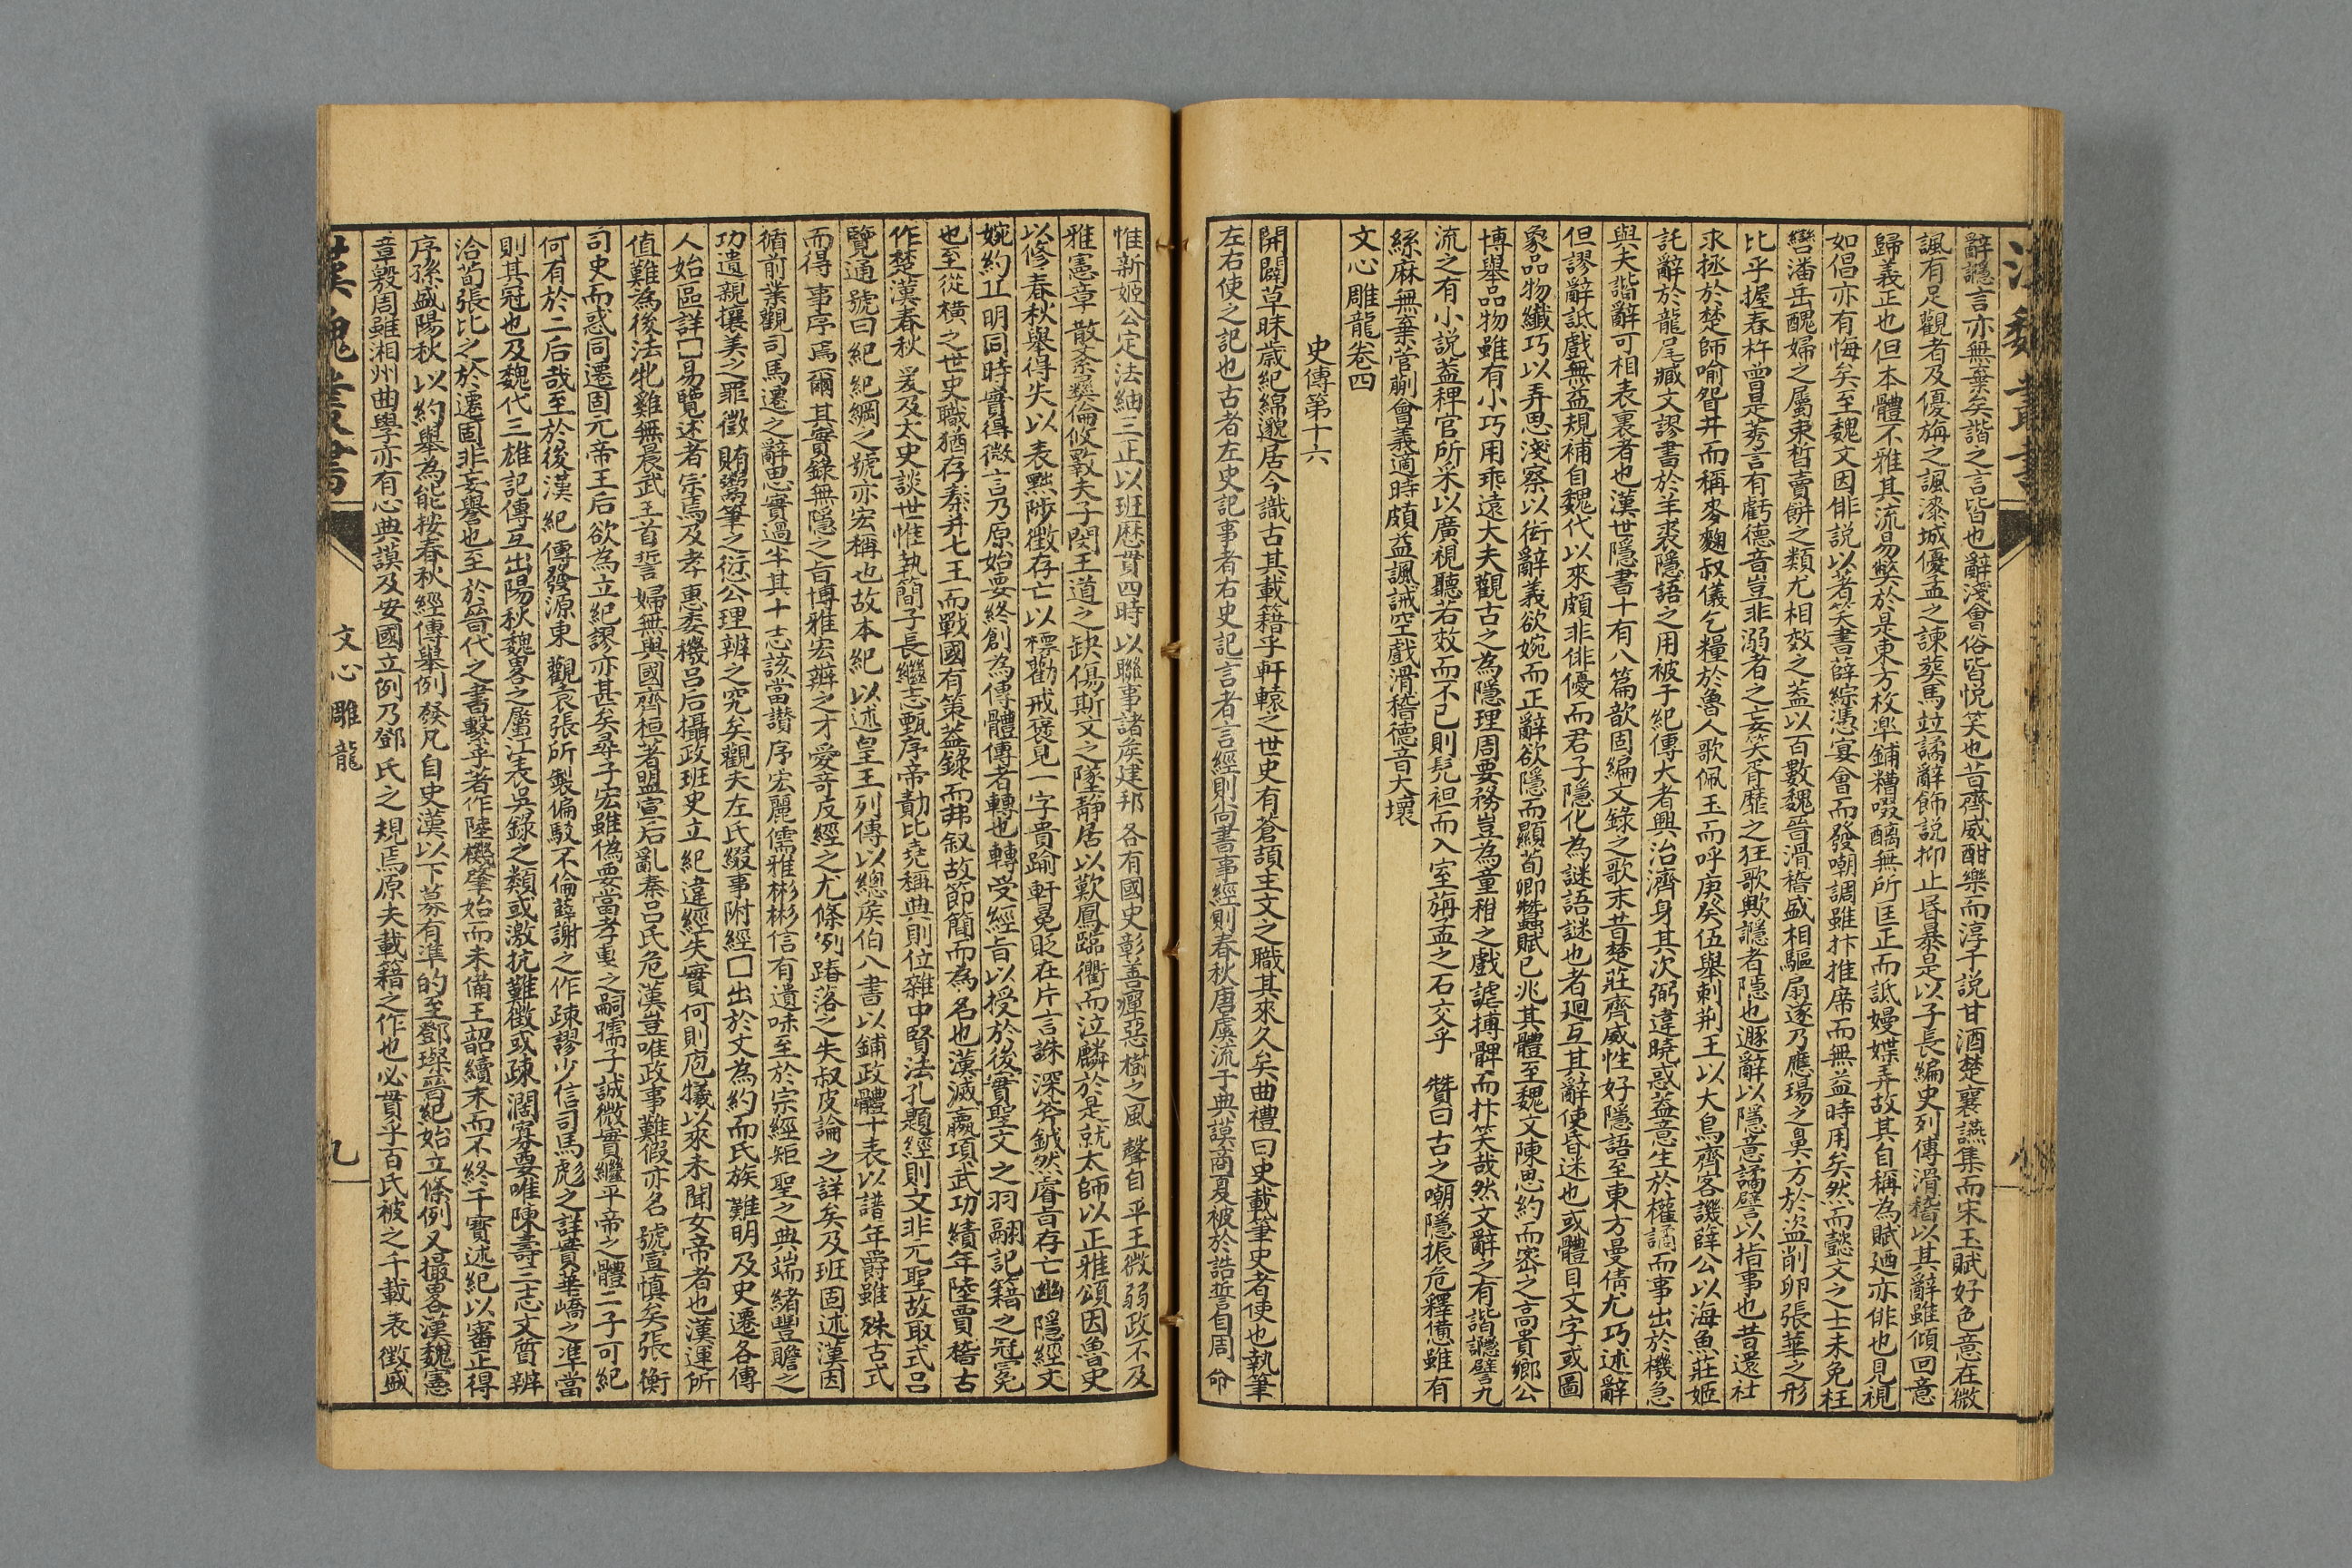 漢魏叢書
辭讔言亦無棄矣諧之言皆也辭淺會俗皆悦笑也昔齊威酣樂而淳于説甘酒楚襄讌集而宋玉賦好色意在微
諷有足觀者及優旃之諷漆城優孟之諫葬馬竝譎辭飾説抑止昬暴是以子長編史列傳滑稽以其辭雖傾回意
歸義正也但本體不雅其流易獘於是東方枚臯鋪糟啜醨無所匡正而詆嫚媟弄故其自稱為賦廼亦俳也見視
如倡亦有悔矣至魏文因俳説以著笑書薛綜憑宴會而發嘲調雖抃推席而無益時用矣然而懿文之士未免枉
轡潘岳醜婦之屬束皙賣餅之類尤相效之蓋以百數魏晉滑稽盛相驅扇遂乃應瑒之鼻方於盗削卵張華之形
比乎握舂杵曾是莠言有虧德音豈非溺者之妄笑胥靡之狂歌歟讔者隱也遯辭以隱意譎譬以指事也昔還社
求拯於楚師喻眢井而稱麥麴叔儀乞糧於魯人歌佩玉而呼庚癸伍舉刺荆王以大鳥齊客譏薛公以海魚莊姬
託辭於龍尾臧文謬書於羊裘隱語之用被于紀傳大者興治濟身其次弼違曉惑葢意生於權譎而事出於機急
與夫諧辭可相表裏者也漢世隱書十有八篇歆固編文錄之歌末昔楚莊齊威性好隱語至東方曼倩尤巧述辭
但謬辭詆戲無益規補自魏代以來頗非俳優而君子隱化為謎語謎也者廻互其辭使昏迷也或體目文字或圖
象品物纖巧以弄思淺察以衒辭義欲婉而正辭欲隱而顯荀卿蠶賦已兆其體至魏文陳思約而密之高貴鄉公
博舉品物雖有小巧用乖遠大夫觀古之為隱理周要務豈為童稚之戲謔搏髀而抃笑哉然文辭之有諧讔譬九
流之有小説葢稗官所采以廣視聽若效而不已則髡袒而入室旃孟之石交乎　贊曰古之嘲隱振危釋憊雖有
絲麻無棄菅蒯會義適時頗益諷誡空戲滑稽德音大壞
文心雕龍卷四
史傳第十六
開闢草昧歲紀綿邈居今識古其載籍乎軒轅之世史有蒼頡主文之職其來久矣曲禮曰史載筆史者使也執筆
左右使之記也古者左史記事者右史記言者言經則尚書事經則春秋唐虞流于典謨商夏被於誥誓自周命
惟新姬公定法紬三正以班歷貫四時以聯事諸侯建邦各有國史彰善癉惡樹之風聲自平王微弱政不及
雅憲章散紊彝倫攸斁夫子閔王道之缺傷斯文之墜靜居以歎鳳臨衢而泣麟於是就太師以正雅頌因魯史
以修春秋舉得失以表黜陟徵存亡以標勸戒褒見一字貴踰軒冕貶在片言誅深斧鉞然睿旨存亡幽隱經文
婉約丘明同時實得微言乃原始要終創為傳體傳者轉也轉受經旨以授於後實聖文之羽翮記籍之冠冕
也至從横之世史職猶存秦并七王而戰國有策葢錄而弗叙故節簡而為名也漢滅嬴項武功績年陸賈稽古
作楚漢春秋爰及太史談世惟執簡子長繼志甄序帝勣比堯稱典則位雜中賢法孔題經則文非元聖故取式吕
覽通號曰紀紀綱之號亦宏稱也故本紀以述皇王列傳以總侯伯八書以鋪政體十表以譜年爵雖殊古式
而得事序焉爾其實錄無隱之旨博雅宏辯之才愛奇反經之尤條例踳落之失叔皮論之詳矣及班固述漢因
循前業觀司馬遷之辭思實過半其十志該當讚序宏麗儒雅彬彬信有遺味至於宗經矩聖之典端緒豐贍之
功遺親攘美之罪徵賄鬻筆之愆公理辨之究矣觀夫左氏綴事附經□出於文為約而氏族難明及史遷各傳
人始區詳□易覽述者宗焉及孝惠委機吕后攝政班史立紀違經失實何則庖犧以來未聞女帝者也漢運所
值難為後法牝雞無晨武王首誓婦無與國齊桓著盟宣后亂秦吕氏危漢豈唯政事難假亦名號宣慎矣張衡
司史而惑同遷固元帝王后欲為立紀謬亦甚矣尋子宏雖偽要當孝惠之嗣孺子誠微實繼平帝之體二子可紀
何有於二后哉至於後漢紀傳發源東觀袁張所製偏駁不倫薛謝之作疎謬少信司馬彪之詳實華嶠之凖當
則其冠也及魏代三雄記傳互出陽秋魏畧之屬江表吳錄之類或激抗難徵或疎濶寡要唯陳壽三志文質辨
洽荀張比之於遷固非妄譽也至於晉代之書繫乎著作陸機肇始而未備王韶續末而不終干寳述紀以審正得
序孫盛陽秋以約舉為能按春秋經傳舉例發凡自史漢以下莫有準的至鄧璨晉紀始立條例又撮畧漢魏憲
章殷周雖湘州曲學亦有心典謨及安國立例乃鄧氏之規焉原夫載籍之作也必貫乎百氏被之千載表徵盛
漢魏叢書
文心雕龍
九